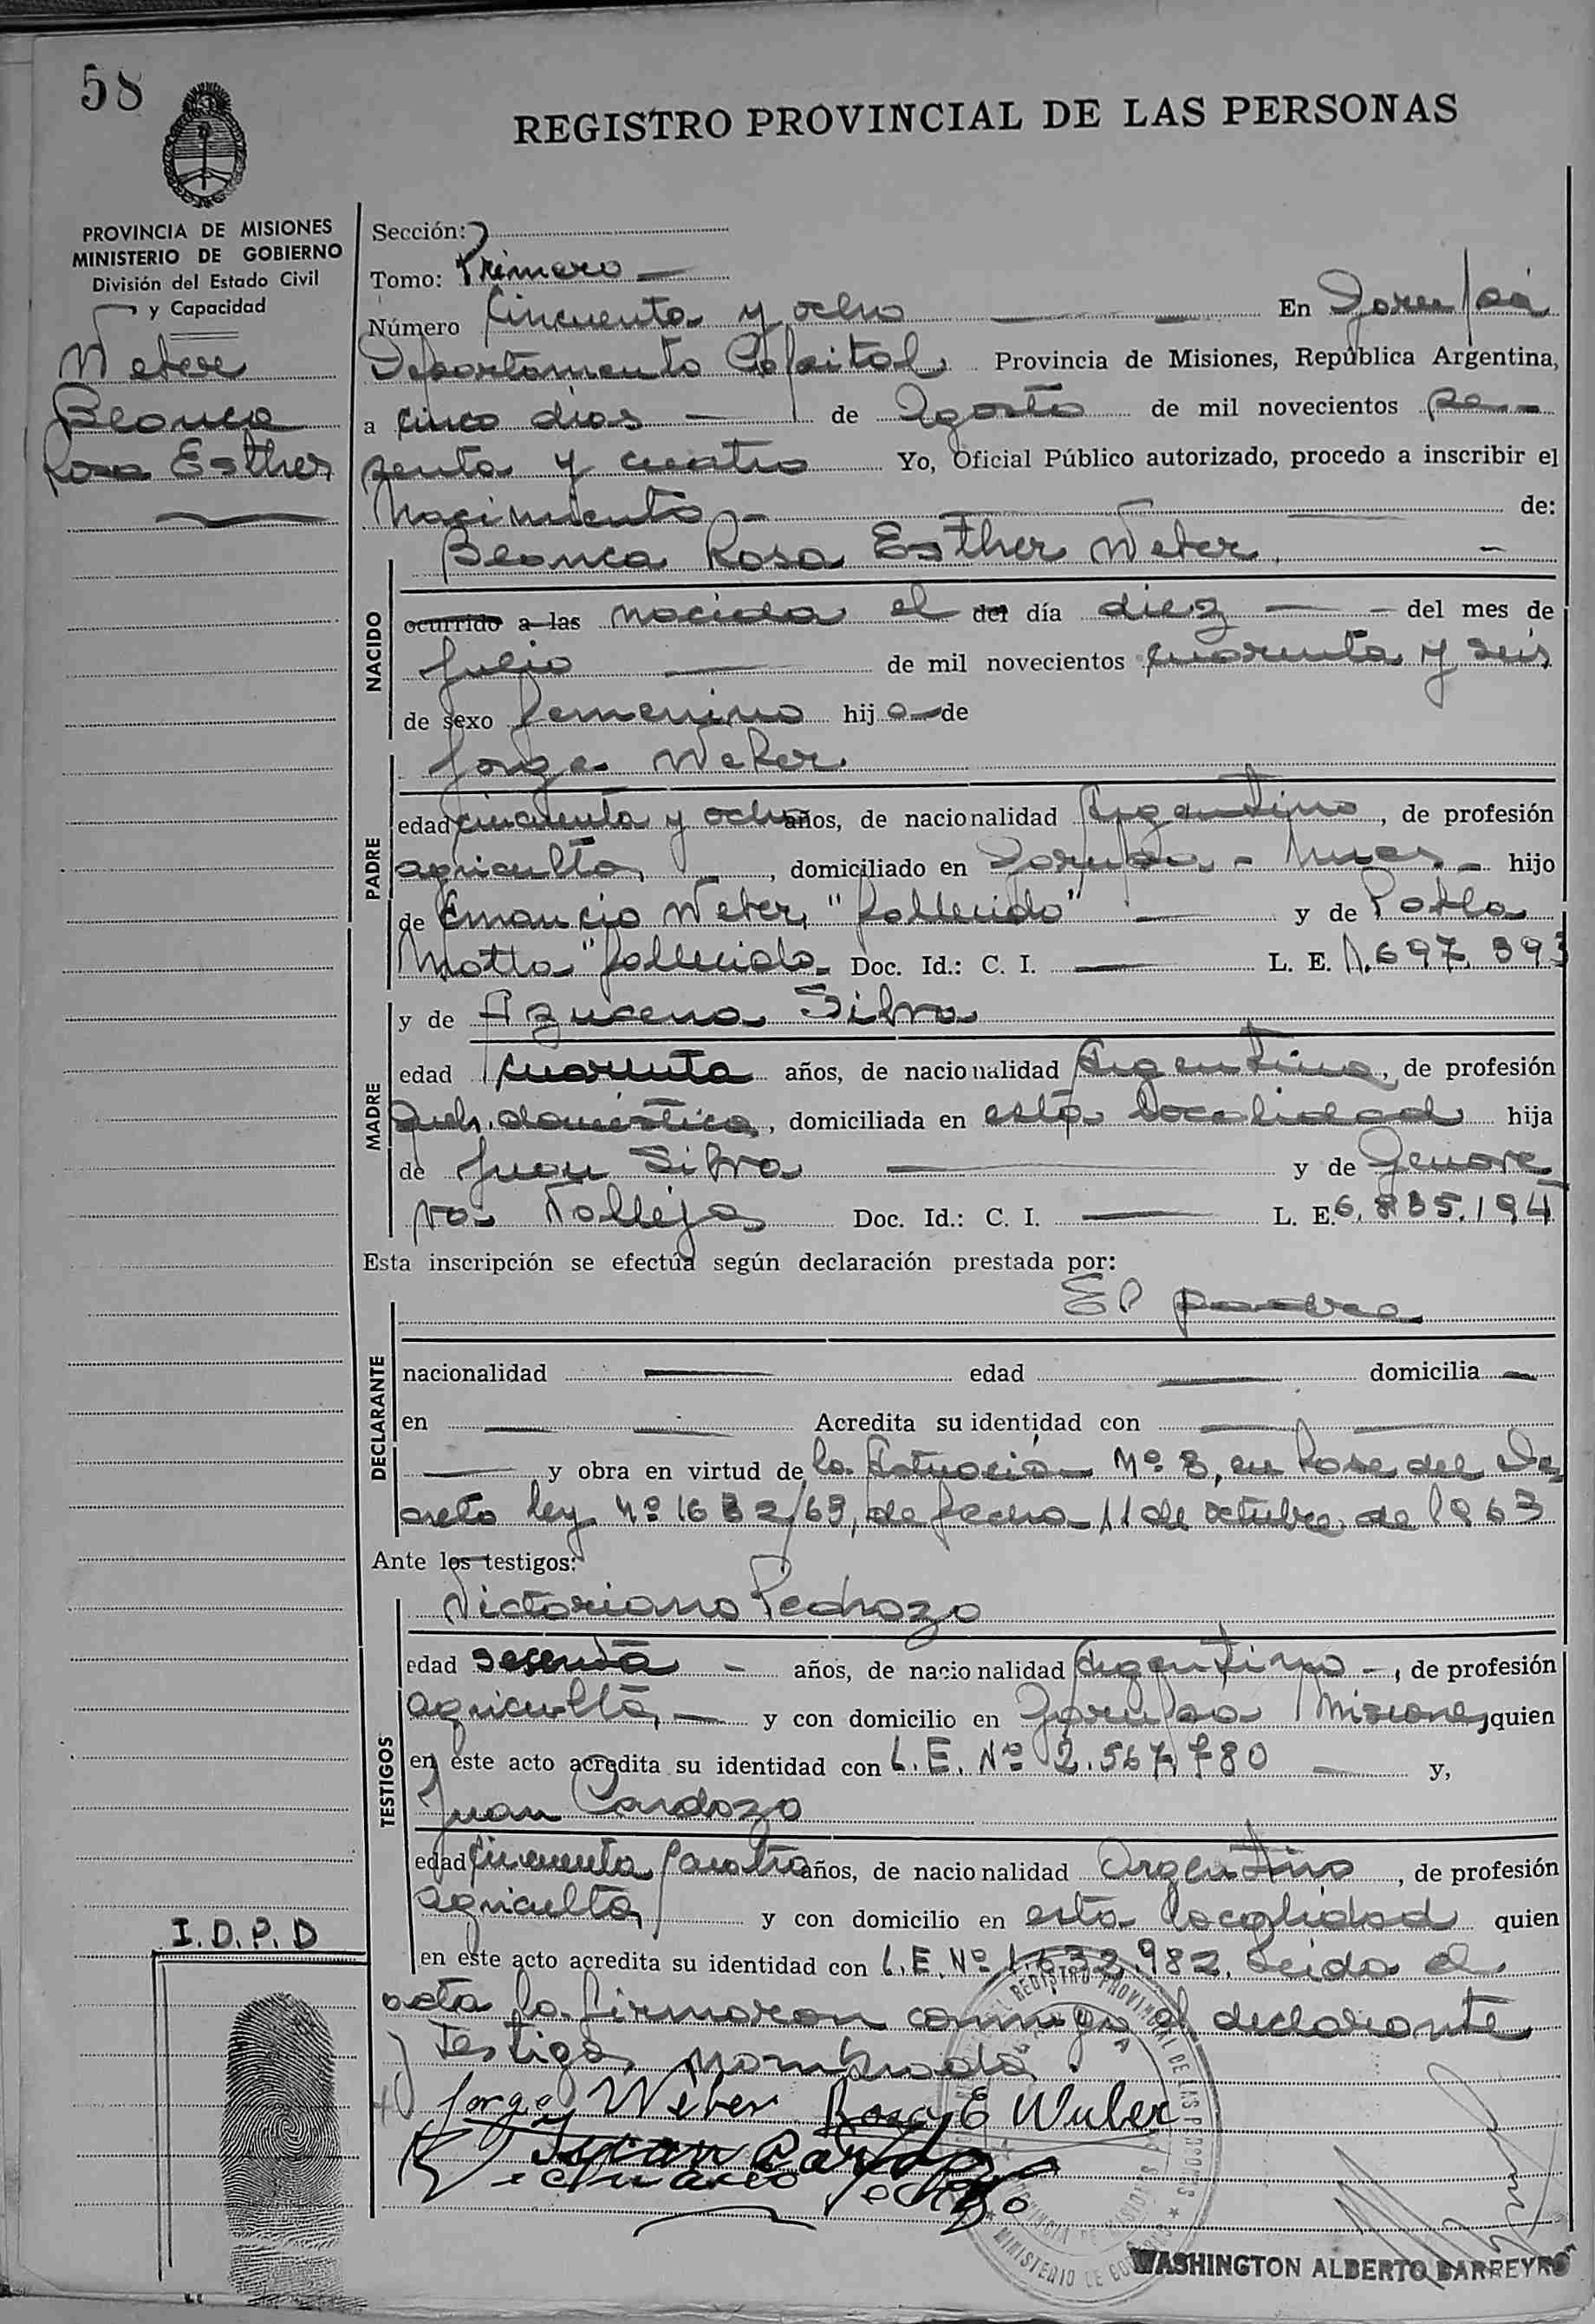 58
REGISTRO PROVINCIAL DE LAS PERSONAS
PROVINCIA DE MISIONES
MINISTERIO DE GOBIERNO
División del Estado Civil
y Capacidad
Weber
Blanca
Rosa Esther
Sección:
Tomo: Primero
Número Cincuenta y ocho En Garupá
Departamento Capital Provincia de Misiones, República Argentina,
a cinco dias de Agosto de mil novecientos se-
senta y cuatro Yo, Oficial Público autorizado, procedo a inscribir el
Nacimiento de:
Blanca Rosa Esther Weber
NACIDO
ocurrido a las nacida el del día diez del mes de
Julio de mil novecientos cuarenta y seis
de sexo femenino hija de
Jorge Weber
PADRE
edad cincuenta y ocho años, de nacionalidad Argentino, de profesión
agricultor, domiciliado en Garupá - hijo
de Weber, "fallecido" y de
Motta "fallecida" Doc. Id.: C. I. L. E. 1.697.393
y de Azucena Silva
MADRE
edad cuarenta años, de nacionalidad Argentina, de profesión
Queh. doméstica, domiciliada en esta localidad hija
de Juan Silva y de Genove
va Vallejos Doc. Id.: C. I. L. E. 6.835.194
Esta inscripción se efectúa según declaración prestada por:
El padre
DECLARANTE
nacionalidad edad domicilia
en Acredita su identidad con
y obra en virtud de la Actuación Nº 8, en base del De
creto ley Nº 1632/63, de fecha 11 de octubre de 1963
Ante los testigos:
Victoriano Pedrozo
TESTIGOS
edad sesenta años, de nacionalidad Argentino, de profesión
agricultor y con domicilio en Garupá Misiones, quien
en este acto acredita su identidad con L.E. Nº 2.567.780 y,
Juan Cardozo
edad cincuenta y cuatro años, de nacionalidad Argentino, de profesión
agricultor y con domicilio en esta localidad quien
en este acto acredita su identidad con L.E. Nº 1.632.982. Leida el
acta la firmaron conmigo el declarante
y testigos nombrados.
Jorge Weber Rosa E Weber
Juan Cardozo
Pedrozo
I.D.P.D
WASHINGTON ALBERTO BARREYRO